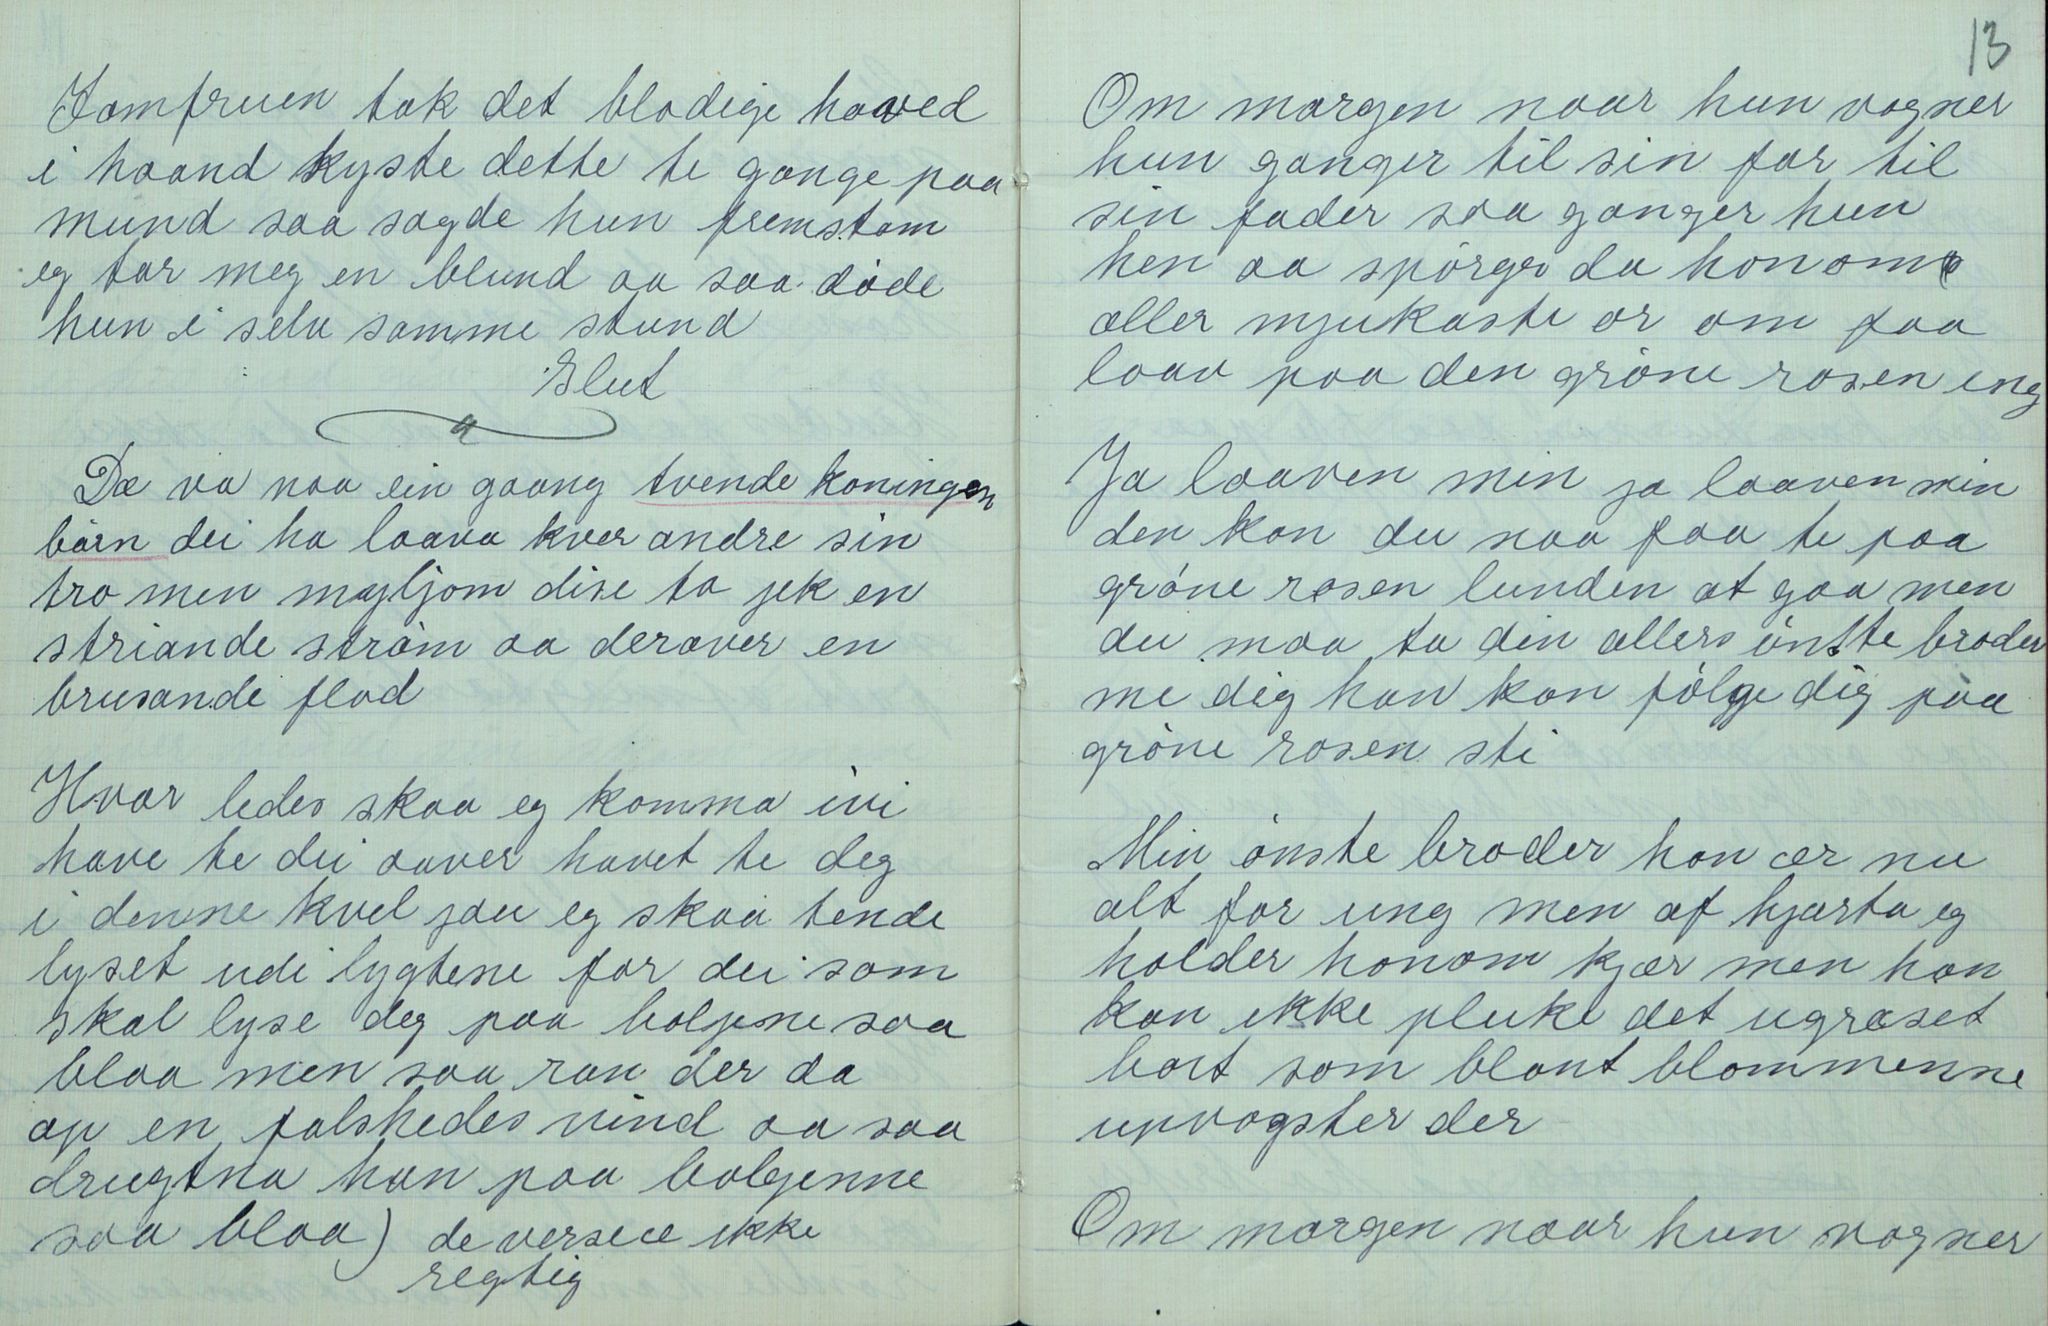 Jomfruen tok det blodige hoved
i haand kyste dette te gange paa
mund saa sagde hun fremstom
eg tar meg en blund aa saa døde
hun i selv samme stund
Slut
Dæ va naa ein gaang tvende koningen
børn dei ha laava kver andre sin
tro men mylljom dise to jek en
striande strøm aa derover en
brusande flod
Hvor ledes skaa eg komma ivi
have te dei aaver havet te deg
i denne kvel jau eg skaa tende
lyset udi lygtene for dei som
skal lyse deg paa boljene saa
blaa men saa ran der da
op en falskedes vind aa saa
drugtna han paa bolgjenne
saa blaa) de verset ikke
regtig
13
Om morgen naar hun vogner
hun ganger til sin far til
sin fader saa ganger hun
hen aa spörger da honom
aller mjukaste or om faa
laav paa den gröne rosen eng
Ja laaven min ja laaven min
den kan du naa faa te paa
gröne rosen lunden at gaa men
du maa ta din allers önste broder
me dig han kan fölge dig paa
gröne rosen sti
Min önste broder han ær nu
alt for ung men af hjærta eg
holder honom kjær men han
kan ikke pluke det ugræset
bort som blant blommenne
upvogster der
Om morgen naar hun vogner